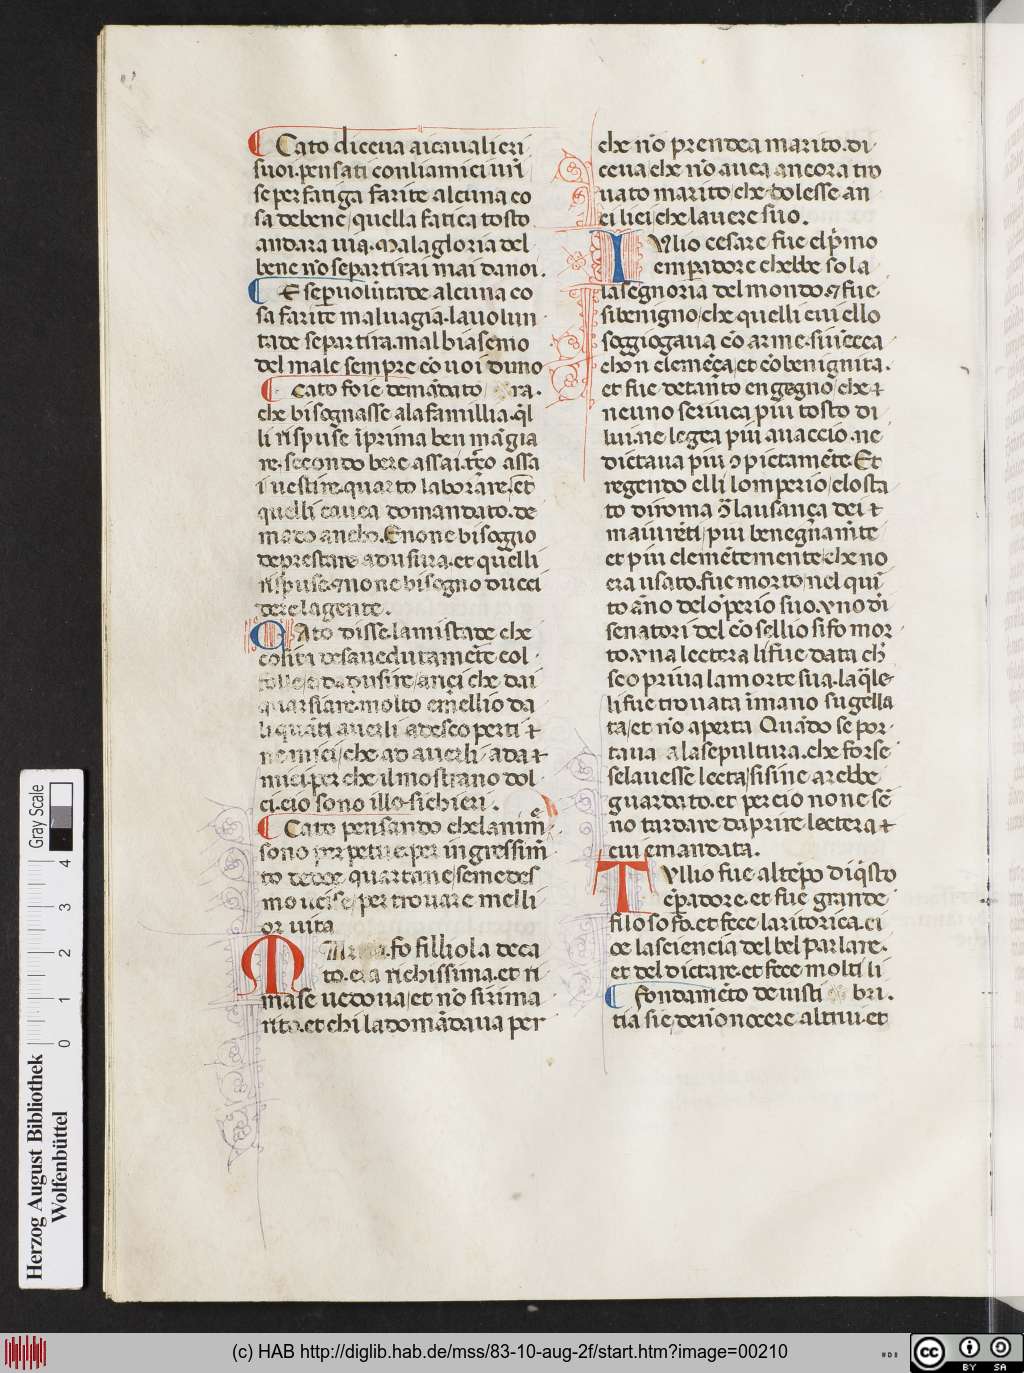 Cato diceua aicaualieri
suoi.pensati conliamici uri
se per fatiga farite alcuna co
sa debene quella fatica tosto
andara uia. Mala gloria del
bene nō separtirai mai da noi.
E se p uolūtade alcuna co
sa farite maluagia. lauolun
tade separtira. mal biasemo
del male sempre cō uoi duno
Cato fo ie demādato ra.
che bisognasse ala famillia. ql
li rispuse ī prima ben māgia
re. secondo bere assai. terço assa
i uestire. quarto laborare. et
quelli caueа domandato. de
mado ancho. E none bisogio
deprestare adusura. et quelli
rispuse. none bisogno ducci
dere lagente.
CAto disse. lamistade che
colita desauedutamēte col
tolle
quarsiare. molto emellio da
li quāti auerli adesco perti et
nemici che ad auerli ada et
mici. per che il mostrano dol
ci. cio sono illo sichieri.
Cato pensando chelanime
sono perpetue. per ingressim
to deoe quartane semedes
mo per trouare melli
or uita
Fo filliola deca
to. era richissima. et ri
mase uedoua et nō si rima
rito. et chi ladomādaua per
che nō prendea marito. di
ceua che nō auea ancora tro
uato marito che uolesse an
ci liei che lauere suo.
IUlio cesare fue elprmo
emperadore chebbe sola
la segnoria del mondo. et fue
si benigno che quelli cui ello
soggiogaua cō arme. si uēcea
cho n clemēça et cō benignita.
et fue de tanto engegno che et
neuno scriuea piu tosto di
lui. ne legea piu auaccio. ne
dictaua piu ɔpictamēte. Et
regendo elli lomperio elosta
to di roma ɔ lausança dei et
maiu reti piu benegnamte
et piu clemētemente che no
era usato. fue morto nel quī
to āno del ōperio suo. uno di
senatori del cōsellio si fo mor
to. una lectera li fue data ch
seo priua la morte sua. laqle
li fue trouata ī mano sugella
ta et nō aperta Quādo se por
taua ala sepultura. che forse
se lauesse lecta si sine arebbe
guardato. et per cio none sē
no tardare daprire lectera et
cui emandata.
TUllio fue al tēpo di qsto
eperadore. et fue grande
filosofo. et fece laritorica. ci
oe lasciencia del bel parlare.
et del dictare. et fece molti li
fondamēto deuisti bri.
tia sie denonocere altrui. et
Gray Scale
0 1 2 3 4
Herzog August Bibliothek
Wolfenbüttel
(c) HAB http://diglib.hab.de/mss/83-10-aug-2f/start.htm?image=00210
cc BY SA